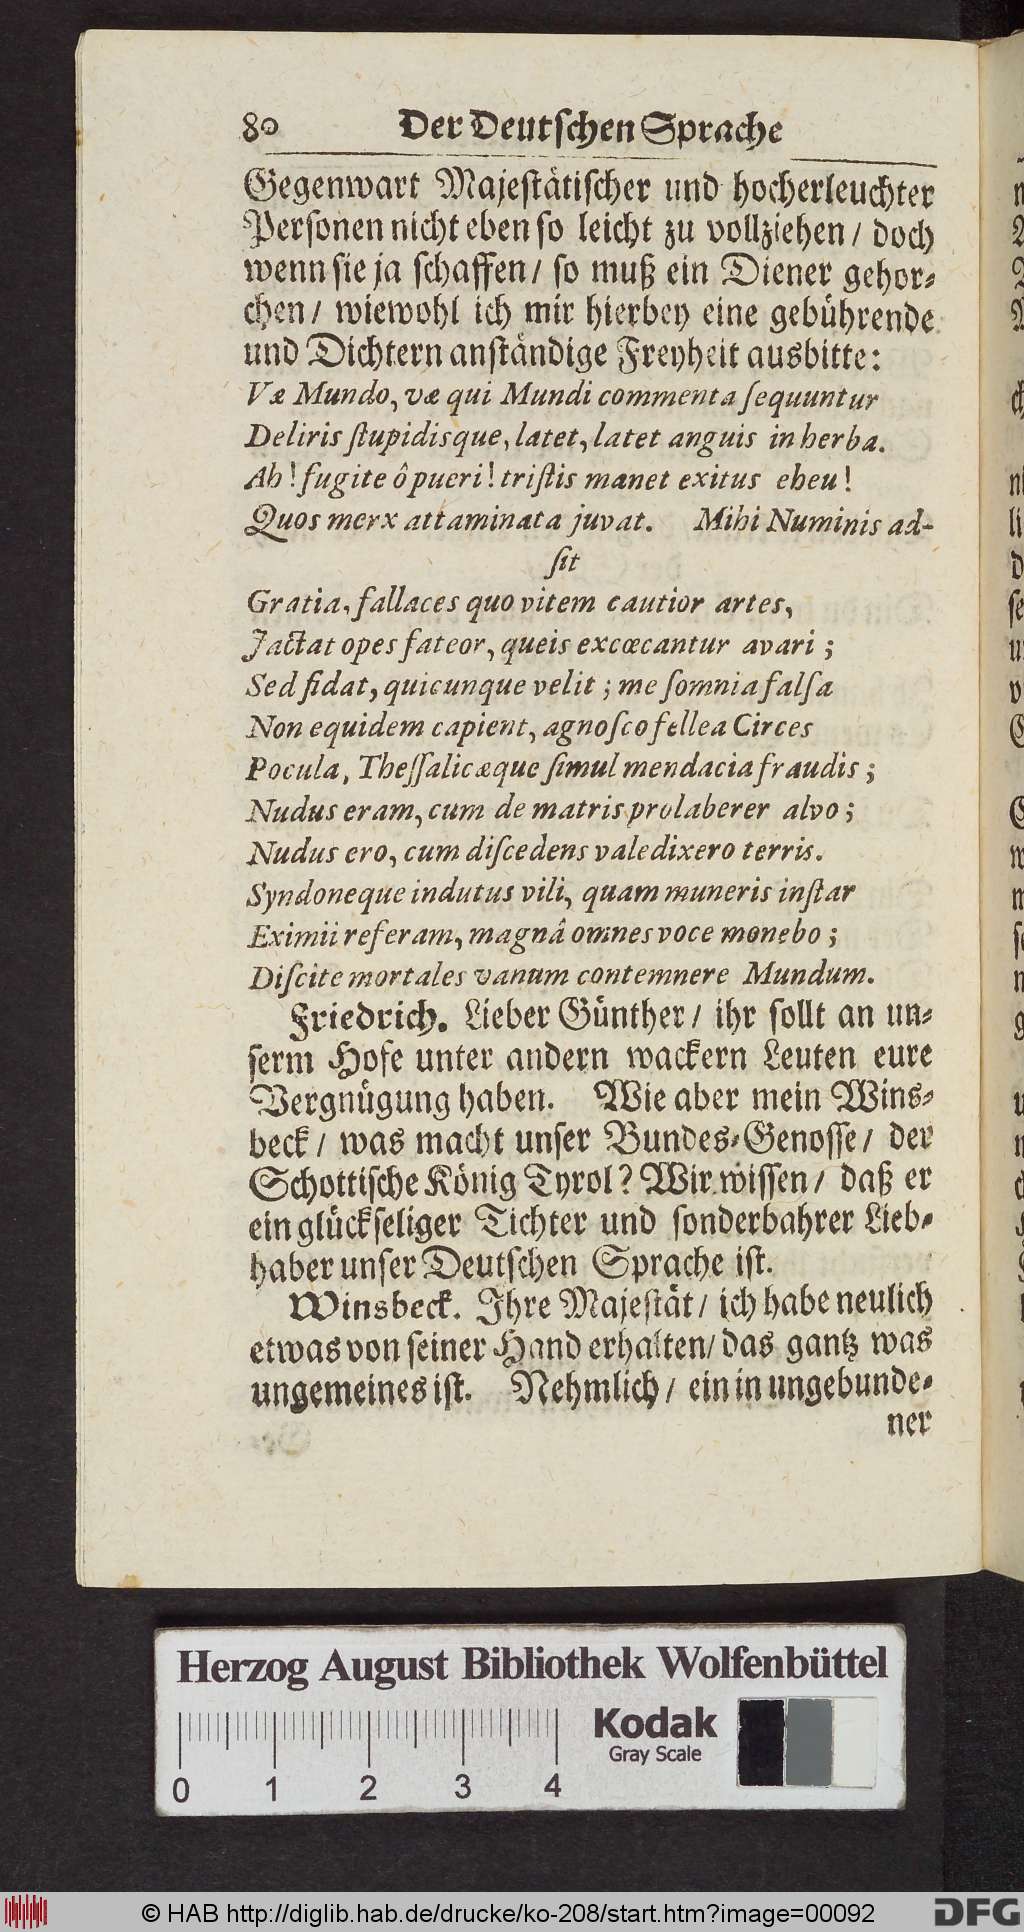 80 Der Deutschen Sprache
Gegenwart Majestätischer und hocherleuchter
Personen nicht eben so leicht zu vollziehen / doch
wenn sie ja schaffen / so muß ein Diener gehor⸗
chen / wiewohl ich mir hierbey eine gebührende
und Dichtern anständige Freyheit ausbitte:
Væ Mundo, væ qui Mundi commenta ſequuntur
Deliris ſtupidisque, latet, latet anguis in herba.
Ah! fugite ô pueri! triſtis manet exitus eheu!
Quos merx attaminata juvat. Mihi Numinis ad-
ſit
Gratia, fallaces quo vitem cautior artes,
Jactat opes fateor, queis excœcantur avari;
Sed fidat, quicunque velit; me ſomnia falſa
Non equidem capient, agnoſco fellea Circes
Pocula, Theſſalicæque ſimul mendacia fraudis;
Nudus eram, cum de matris prolaberer alvo;
Nudus ero, cum diſcedens valedixero terris.
Syndoneque indutus vili, quam muneris inſtar
Eximii referam, magnâ omnes voce monebo;
Diſcite mortales vanum contemnere Mundum.
Friedrich. Lieber Günther / ihr sollt an un⸗
serm Hofe unter andern wackern Leuten eure
Vergnügung haben. Wie aber mein Wins⸗
beck / was macht unser Bundes⸗Genosse / der
Schottische König Tyrol? Wir wissen / daß er
ein glückseliger Tichter und sonderbahrer Lieb⸗
haber unser Deutschen Sprache ist.
Winsbeck. Ihre Majestät / ich habe neulich
etwas von seiner Hand erhalten / das gantz was
ungemeines ist. Nehmlich / ein in ungebunde⸗
ner
Herzog August Bibliothek Wolfenbüttel
Kodak
Gray Scale
0 1 2 3 4
© HAB http://diglib.hab.de/drucke/ko-208/start.htm?image=00092
DFG